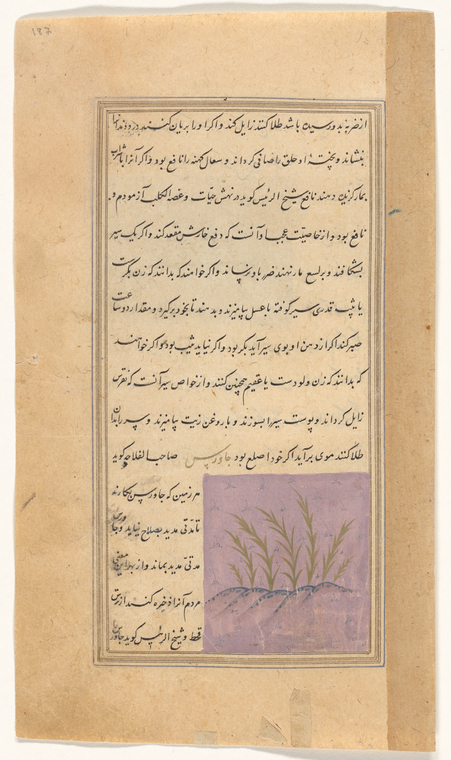 187
از ضربه بدو رسیده باشد طلا کنند زایل کند و اکر او را بریان کنند و بر دندانها
بنشاند و پختهٔ او حلق را صافی کرداند و سعال کهنه را نافع بود و اکر آنرا با شراب
بمار کزیده دهند نافع شیخ الرئیس کوید در نهش حیات و عضه الکلب آزمودم و
نافع بود و از خاصیت عجیب او آنست که دفع خارش مقعد کند و اکر یک سیر
بشکافند و بر لسع مار نهند ضرر باو نرساند و اکر خواهند که بدانند که زن بکرست
یا ثیب قدری سیر کوفته با عسل بیامیزند و بدهند تا بخود برکیرد و مقدار دو ساعت
صبر کند اکر از دهن او بوی سیر آید بکر بود و اکر نیاید ثیب بود و اکر خواهند
که بدانند که زن ولودست یا عقیم همچنین کنند و از خواص سیر آنست که نقرس
زایل کرداند و پوست سیر را بسوزند و با روغن زیت بیامیزند و سر را بدان
طلا کنند موی برآید اکر خود اصلع بود جاورس صاحب الفلاحه کوید
هر زمین که جاورس بکارند
تا مدتی مدید بصلاح نیاید و جاورس
مدتی مدید بماند و از بهر این معنی
مردم آنرا ذخیره کنند از برای
قحط و شیخ الرئیس کوید جاورس